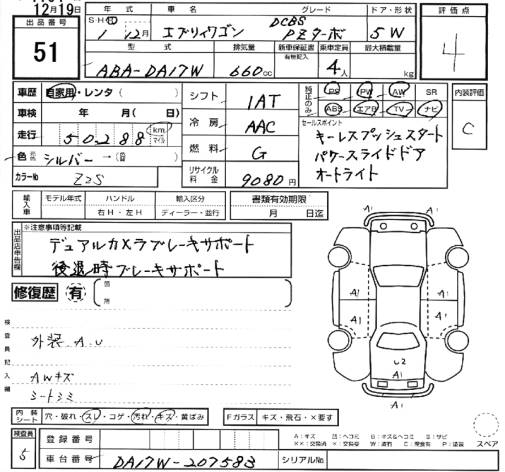 12月19日
出品番号
51
年式 車名 グレード ドア・形状 評価点
S・H・R
1年12月 エブリイワゴン DCBS PZターボ 5W
4
型式 排気量 新車保証書 有無記入 乗車定員 最大積載量
ABA-DA17W 660cc 4人 kg
車歴 自家用・レンタ( )
シフト 1AT
純正のみ PS PW AW SR
ABS エアB TV ナビ
内装評価 C
車検 年 月(日)
冷房 AAC
セールスポイント
キーレスプッシュスタート
走行 50288 km マイル
燃料 G
パワースライドドア
色 シルバー
オートライト
カラーNo Z2S
リサイクル料金 9080円
輸入車 モデル年式 ハンドル 輸入区分 書類有効期限
右H・左H ディーラー・並行 月 日迄
出品店申告欄 ※注意事項等記載
デュアルカメラブレーキサポート
後退時ブレーキサポート
修復歴 有 箇所
検査員記入欄
外装 A.U
AWキズ
シートシミ
A1 A1 A1 A1 A1 A1 U2 A1
内装シート 穴・破れ・スレ・コゲ・汚れ・キズ・黄ばみ Fガラス キズ・飛石・×要す
スペア
検査員 5
登録番号
車台番号 DA17W-207583 シリアルNo